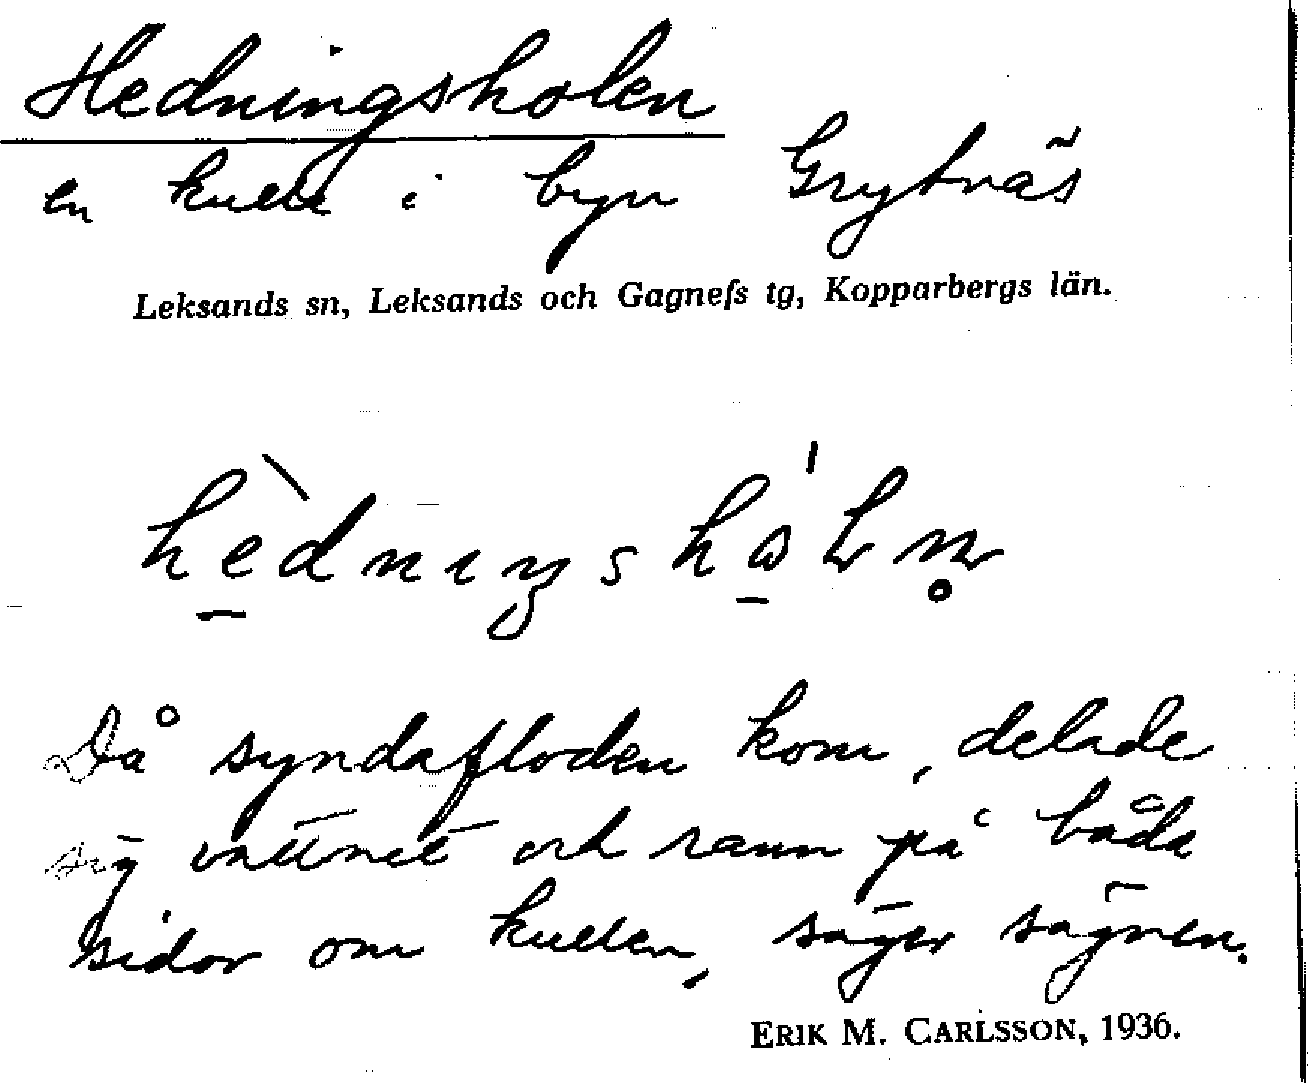 Hedningsholen
en kulle i byn Grytnäs
Leksands sn, Leksands och Gagneſs tg, Kopparbergs län.
Då syndafloden kom, delade
sig vattnet och rann på båda
sidor om kullen, säger sägnen.
ERIK M. CARLSSON, 1936.